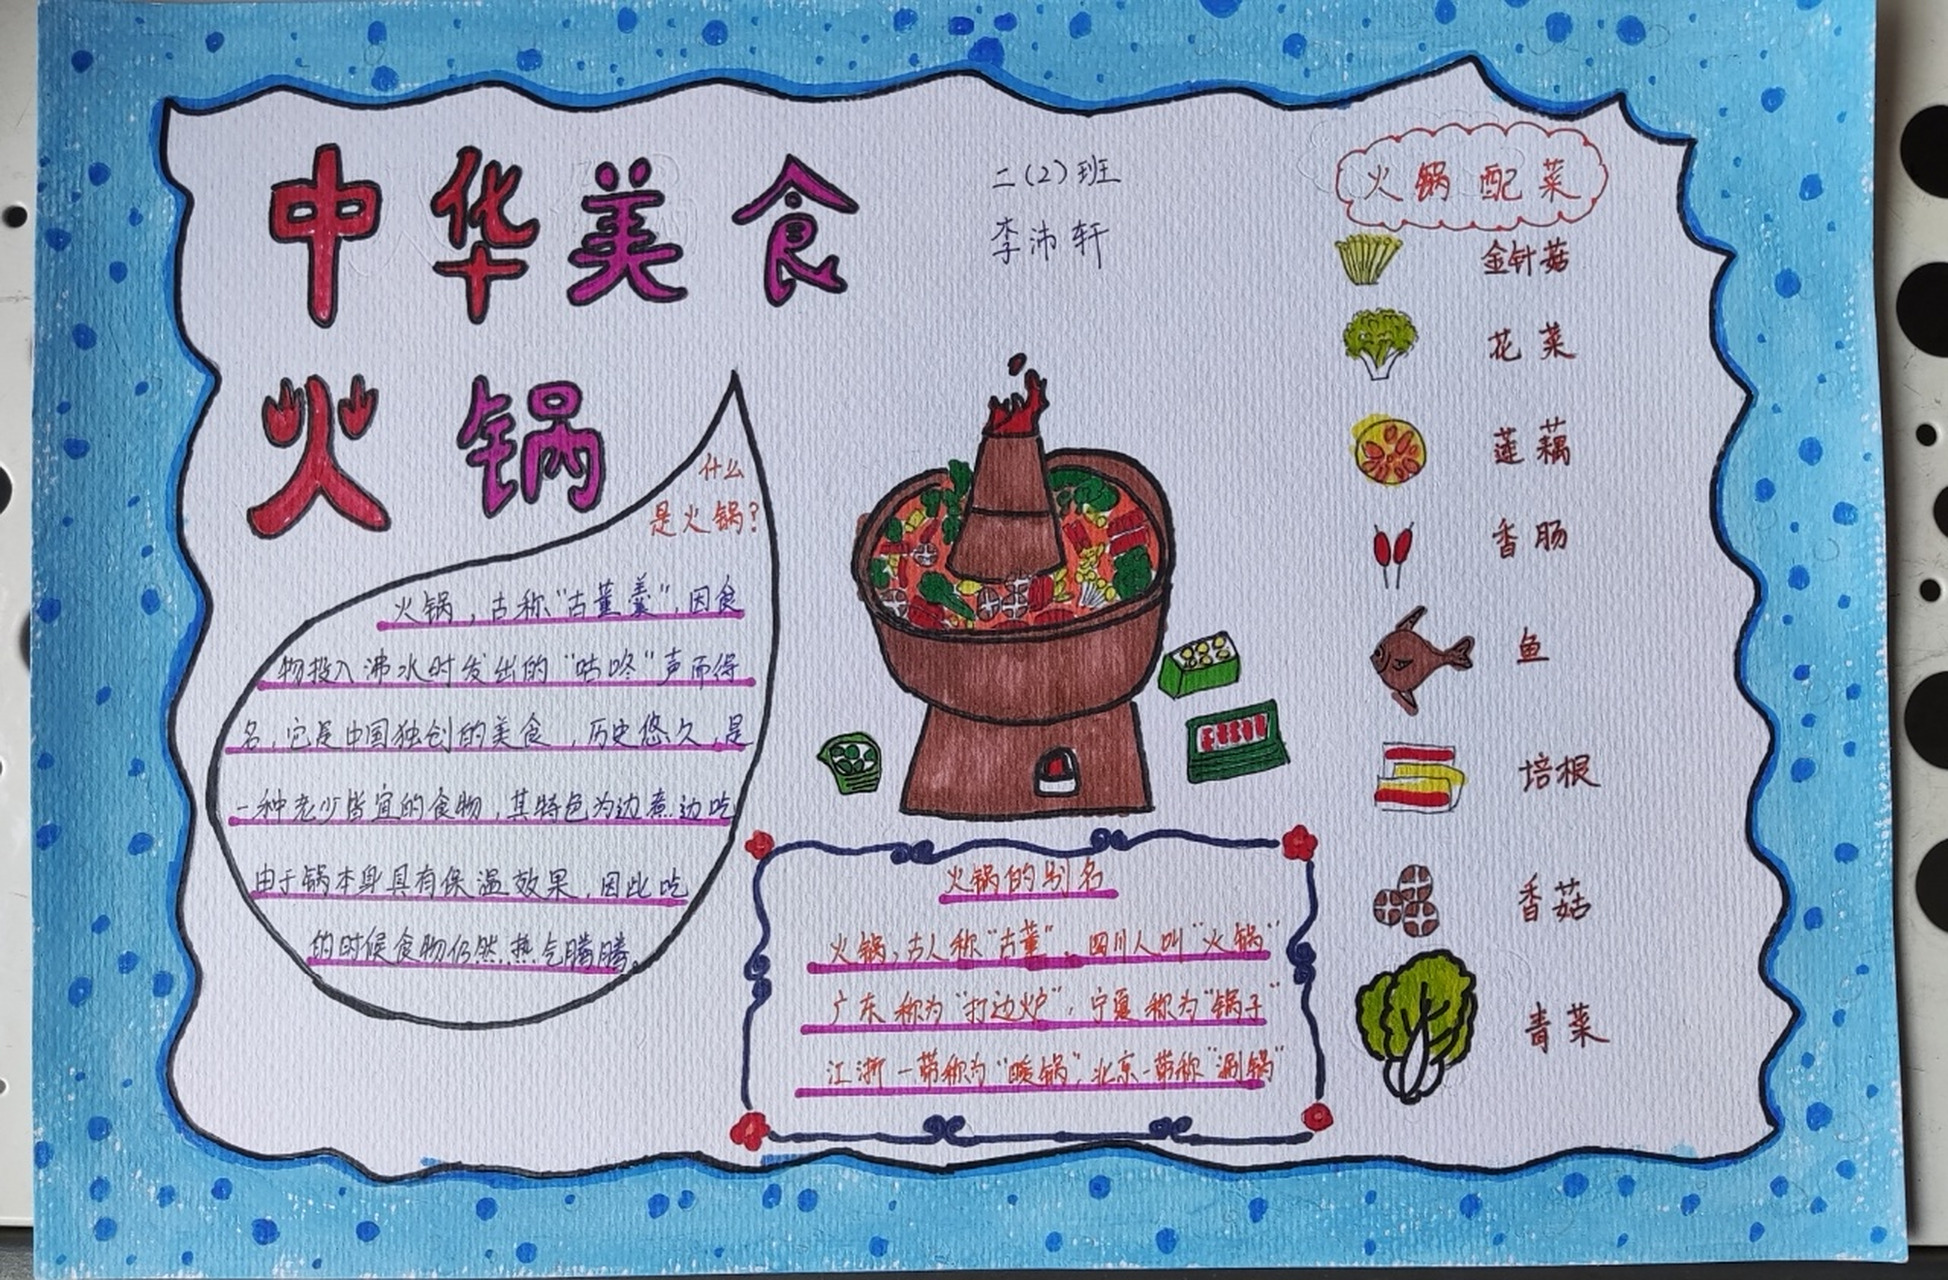 中华美食
火锅
二(2)班
李沛轩
什么
是火锅?
火锅,古称"古董羹",因食
物投入沸水时发出的"咕咚"声而得
名,它是中国独创的美食,历史悠久,是
一种老少皆宜的食物,其特色为边煮边吃
由于锅本身具有保温效果,因此吃
的时候食物仍然热气腾腾。
火锅的别名
火锅,古人称"古董",四川人叫"火锅"
广东称为"打边炉",宁夏称为"锅子"
江浙一带称为"暖锅",北京一带称"涮锅"
火锅配菜
金针菇
花菜
莲藕
香肠
鱼
培根
香菇
青菜